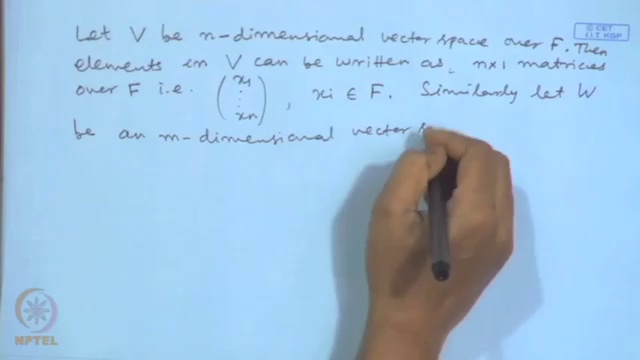 © CET
I.I.T. KGP
Let V be n-dimensional vector space over F. Then
elements in V can be written as, n×1 matrices
over F i.e. (x₁ ⋮ xₙ), xi ∈ F. Similarly let W
be an m-dimensional vector s
NPTEL